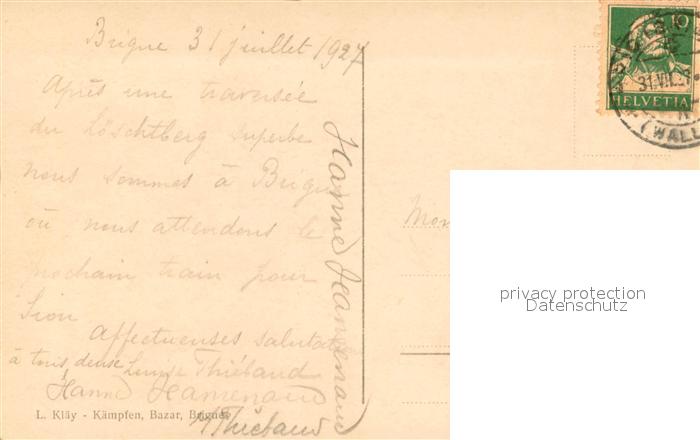 Brigue 31 juillet 1927
Après une traversée
du Löschtberg superbe
nous sommes à Brigue
où nous attendons le
prochain train pour
Sion
Affectueuses salutat
à tous deux Louise Thiébaud
Hanne
Thiébaud
Hanne
L. Kläy - Kämpfen, Bazar, Brigue
10
HELVETIA
31.VII.27
(WALL
privacy protection
Datenschutz